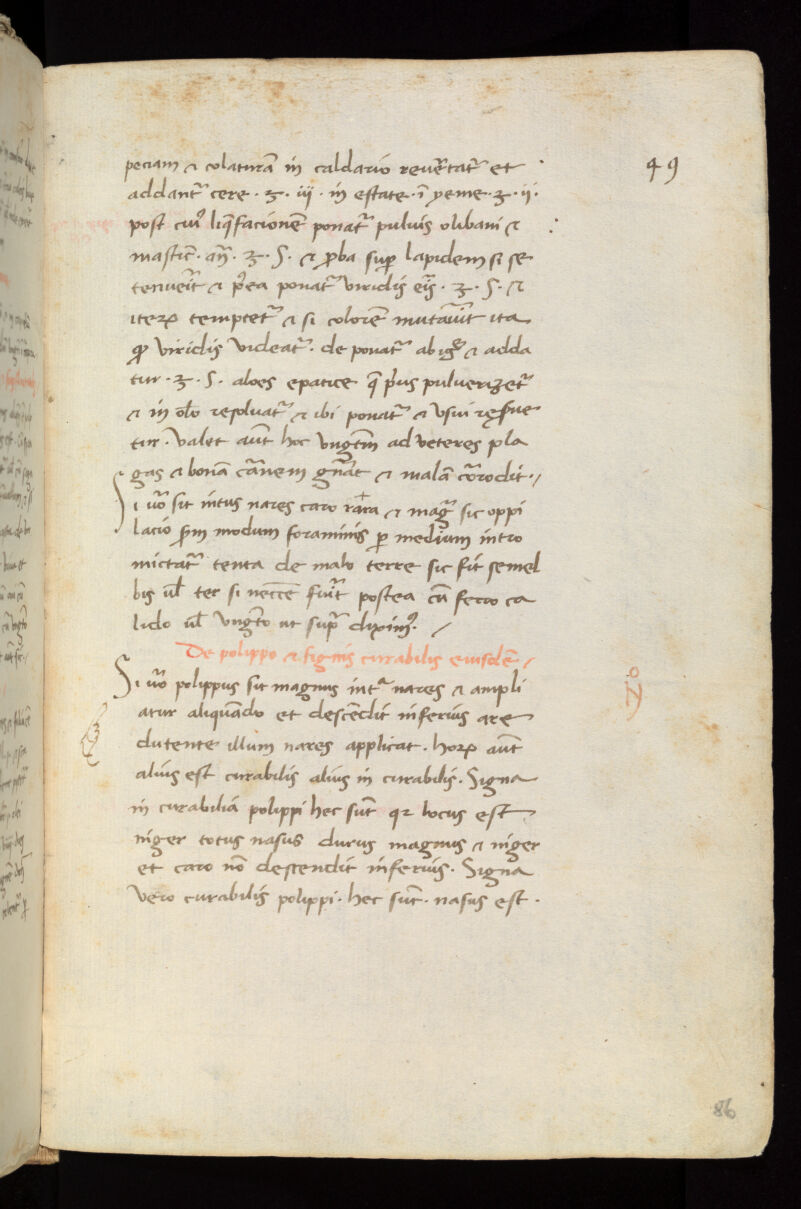 49
peciam & colaturā in caldario reuertat᷑ et
addant᷑ cere · ℥ · iij · in estate · ī yeme · ℥ · ii ·
post cui᷒ liq̄facionē ponat᷑ puluis olibani &
mastic̄ · an̄ · ℥ · S · & ꝓba suꝑ lapidem si se
tenueit᷑ & p̄ea ponat᷑ viridis ei᷑s · ℥ · S · &
iteꝝ temptet᷑ & si colorē mutauit᷑ ita
ꝙ viridis videat᷑ · de ponat᷑ ab igē & adda
tur · ℥ · S · aloes epatice q̄ p᷑us pulverizet᷑
& in ol̄o resoluat᷑ & ibi ponat᷑ & vsui reserue
tur · valet aut̄ hoc vngt̄m ad veteres pla
gas & bonā carnem gn̄at & malā corrodit ·/
Si u̓o sit intus nares caro rara & mag᷑ sic oppi
lacio s̄m modum foraminis ꝑ medium intro
mictat᷑ tenta de malo terre sic fit semel
bis ul̄ ter si neccē fuit᷑ postea cū ferro ca
lido ul̄ vngt̄o ut sup᷑ dixim᷒ · /
De polippo & signis curabilis eiusdē /
Si u̓o polippus sit magnus int᷑ nares & ampli
atur aliquando et descēdit inferius are
dutente illum nares applicat · hoꝝ aut̄
alius est curabilis alius in curabilis · Signa
in curabiliā polippi hec sūt qꝛ locus est
niger totus nasus durus magnus & niger
et caro nō descendit inferius · Signa
vero curabilis polippi · hec sūt · nasus est ·
86